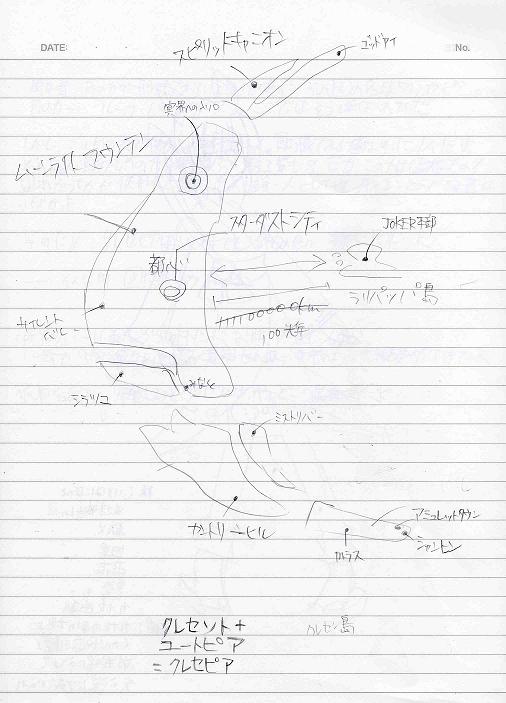 DATE:
No.
スピリットキャニオン
ゴッドアイ
冥界への入り口
ムーンライトマウンテン
スターダストシティ
都心
JOKER本部
ラリパッパ島
100光年
サイレント
バレー
シラツユ
みなと
ミストリバー
カントリーヒル
アミュレットタウン
カルラス
クレセント+
ユートピア
=クレセピア
クレセン島